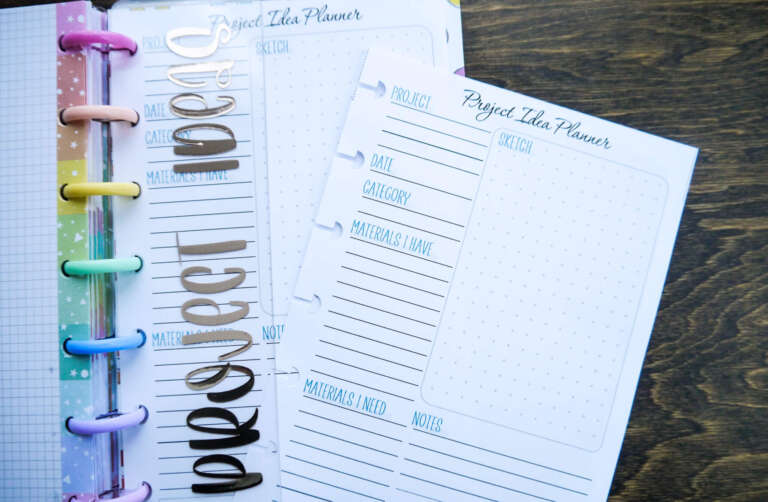 Project Idea Planner
PROJECT
SKETCH
DATE
CATEGORY
MATERIALS I HAVE
MATERIALS I NEED
NOTES
PROJECT IDEAS
Project Idea Planner
PROJECT
SKETCH
DATE
CATEGORY
MATERIALS I HAVE
MATERIALS I NEED
NOTES